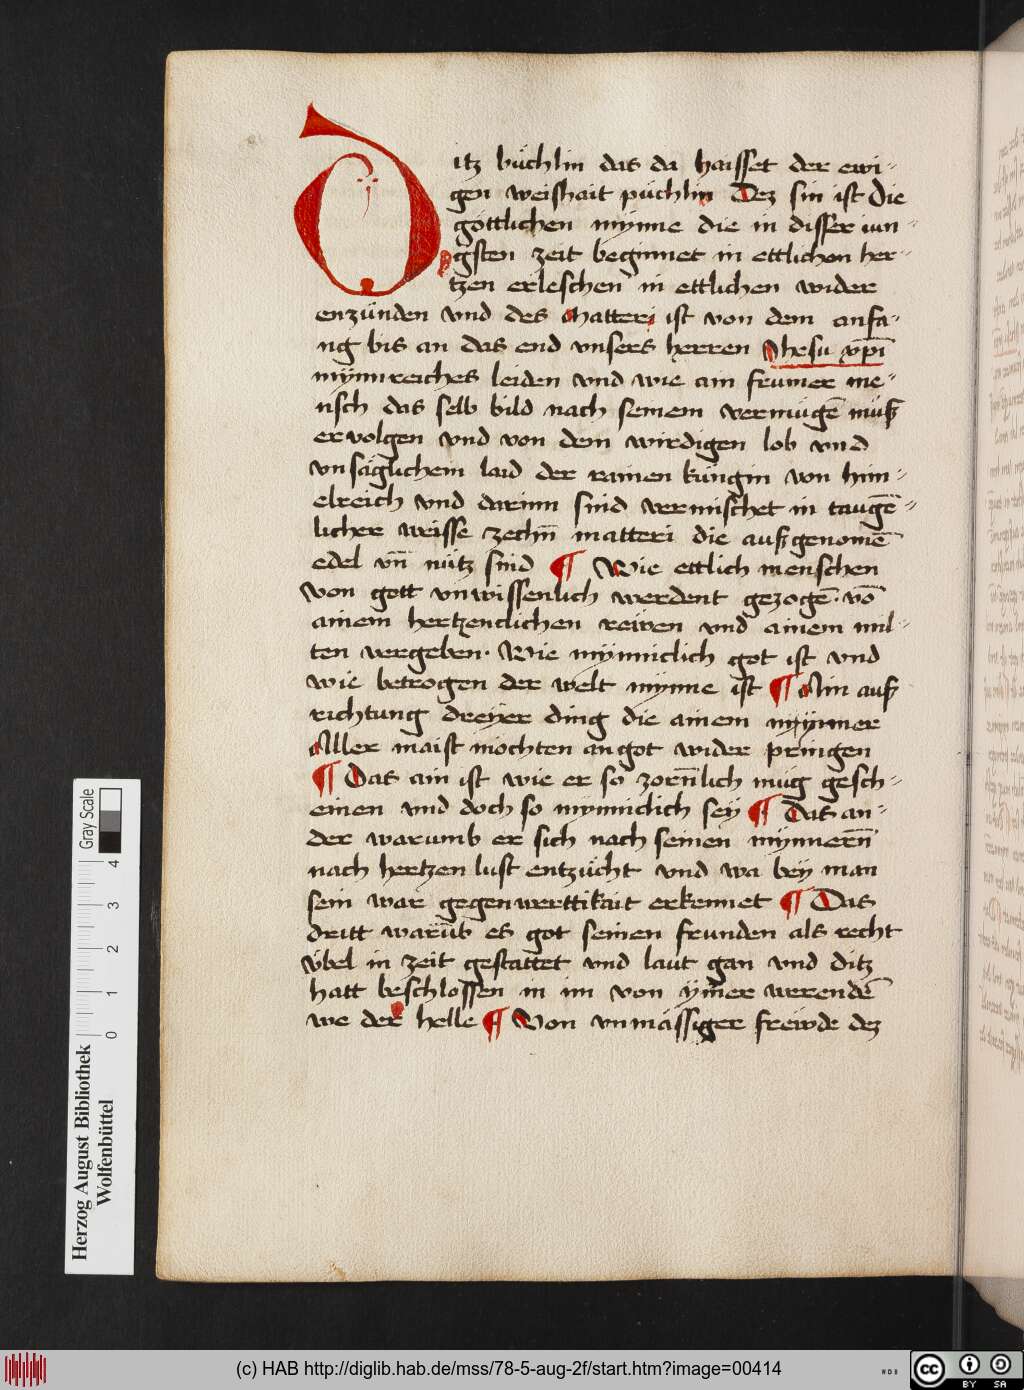 Ditz büchlin das da haisset der ewi-
gen weishait püchlin Dez sin ist die
göttlichen mynne die in disser iun-
gsten zeit beginnet in ettlichen her-
tzen erleschen in ettlichen wider
enzünden vnd des matteri ist von dem anfa-
ng bis an das end vnsers herren Jhesu xp̄i
mynnreiches leiden vnd wie ain frumer me-
nsch das selb bild nach seinem vermügē müß
ervolgen vnd von dem wirdigen lob vnd
vnsäglichem laid der rainen küngin von him-
elreich vnd darinn sind vermischet in taugē-
licher weisse zechn̄ matteri die außgenomē
edel vn̄ nütz sind ¶ Wie ettlich menschen
von gott vnwissenlich werdent gezogē. vō
ainem hertzenclichen reiwen vnd ainem mil-
ten vergeben. Wie mynniclich got ist vnd
wie betrogen der welt mynne ist ¶ Ain auß
richtung dreyer ding die ainem mynner
Aller maist möchten an got wider pringen
¶ Das ain ist wie er so zorn̄lich müg gesch-
einen vnd doch so mynniclich sey ¶ Das an-
der warumb er sich nach seinen mynnern̄
nach hertzen lust entzücht vnd wa bey man
sein war gegenwerttikait erkennet ¶ Das
dritt warūb es got seinen frunden als recht
übel in zeit gestattet vnd laut gan vnd ditz
hatt beschlossen in im von ym̄er werendē
we der helle ¶ Von vnmässiger freiwde dez
Gray Scale
0 1 2 3 4
Herzog August Bibliothek
Wolfenbüttel
(c) HAB http://diglib.hab.de/mss/78-5-aug-2f/start.htm?image=00414
WDB
cc
BY SA